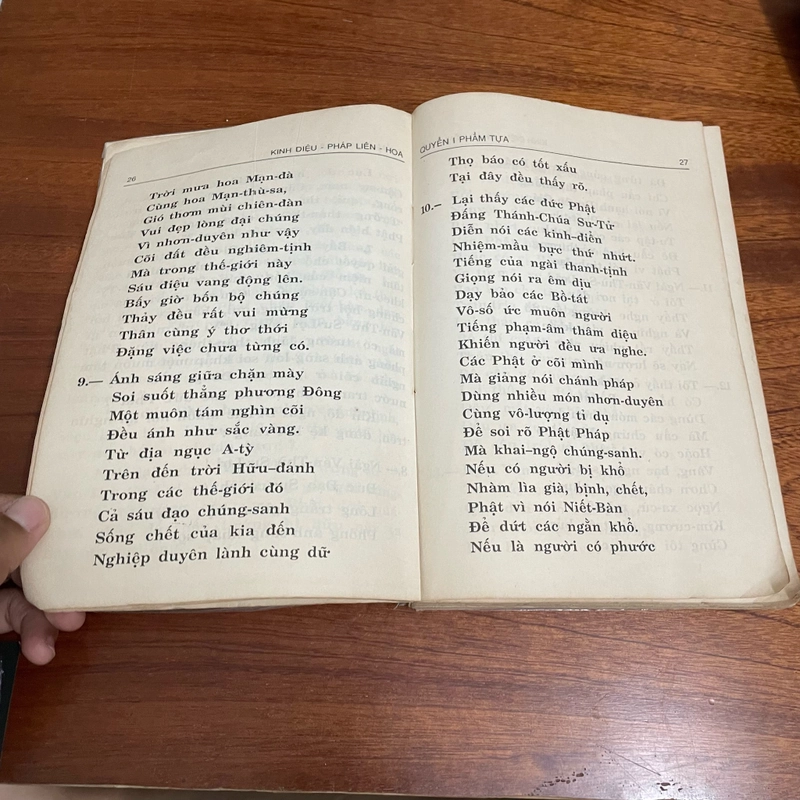 26
KINH DIỆU - PHÁP LIÊN - HOA
Trời mưa hoa Mạn-đà
Cùng hoa Mạn-thù-sa,
Gió thơm mùi chiên-đàn
Vui đẹp lòng đại chúng
Vì nhơn-duyên như vậy
Cõi đất đều nghiêm-tịnh
Mà trong thế-giới này
Sáu điệu vang động lên.
Bấy giờ bốn bộ chúng
Thảy đều rất vui mừng
Thân cùng ý thơ thới
Đặng việc chưa từng có.
9.— Ánh sáng giữa chặn mày
Soi suốt thẳng phương Đông
Một muôn tám nghìn cõi
Đều ánh như sắc vàng.
Từ địa ngục A-tỳ
Trên đến trời Hữu-đảnh
Trong các thế-giới đó
Cả sáu đạo chúng-sanh
Sống chết của kia đến
Nghiệp duyên lành cùng dữ
QUYỂN I PHẨM TỰA
27
Thọ báo có tốt xấu
Tại đây đều thấy rõ.
10.— Lại thấy các đức Phật
Đấng Thánh-Chúa Sư-Tử
Diễn nói các kinh-điển
Nhiệm-mầu bực thứ nhứt.
Tiếng của ngài thanh-tịnh
Giọng nói ra êm dịu
Dạy bảo các Bồ-tát
Vô-số ức muôn người
Tiếng phạm-âm thâm diệu
Khiến người đều ưa nghe.
Các Phật ở cõi mình
Mà giảng nói chánh pháp
Dùng nhiều món nhơn-duyên
Cùng vô-lượng tỉ dụ
Để soi rõ Phật Pháp
Mà khai-ngộ chúng-sanh.
Nếu có người bị khổ
Nhàm lìa già, bịnh, chết,
Phật vì nói Niết-Bàn
Để dứt các ngằn khổ.
Nếu là người có phước